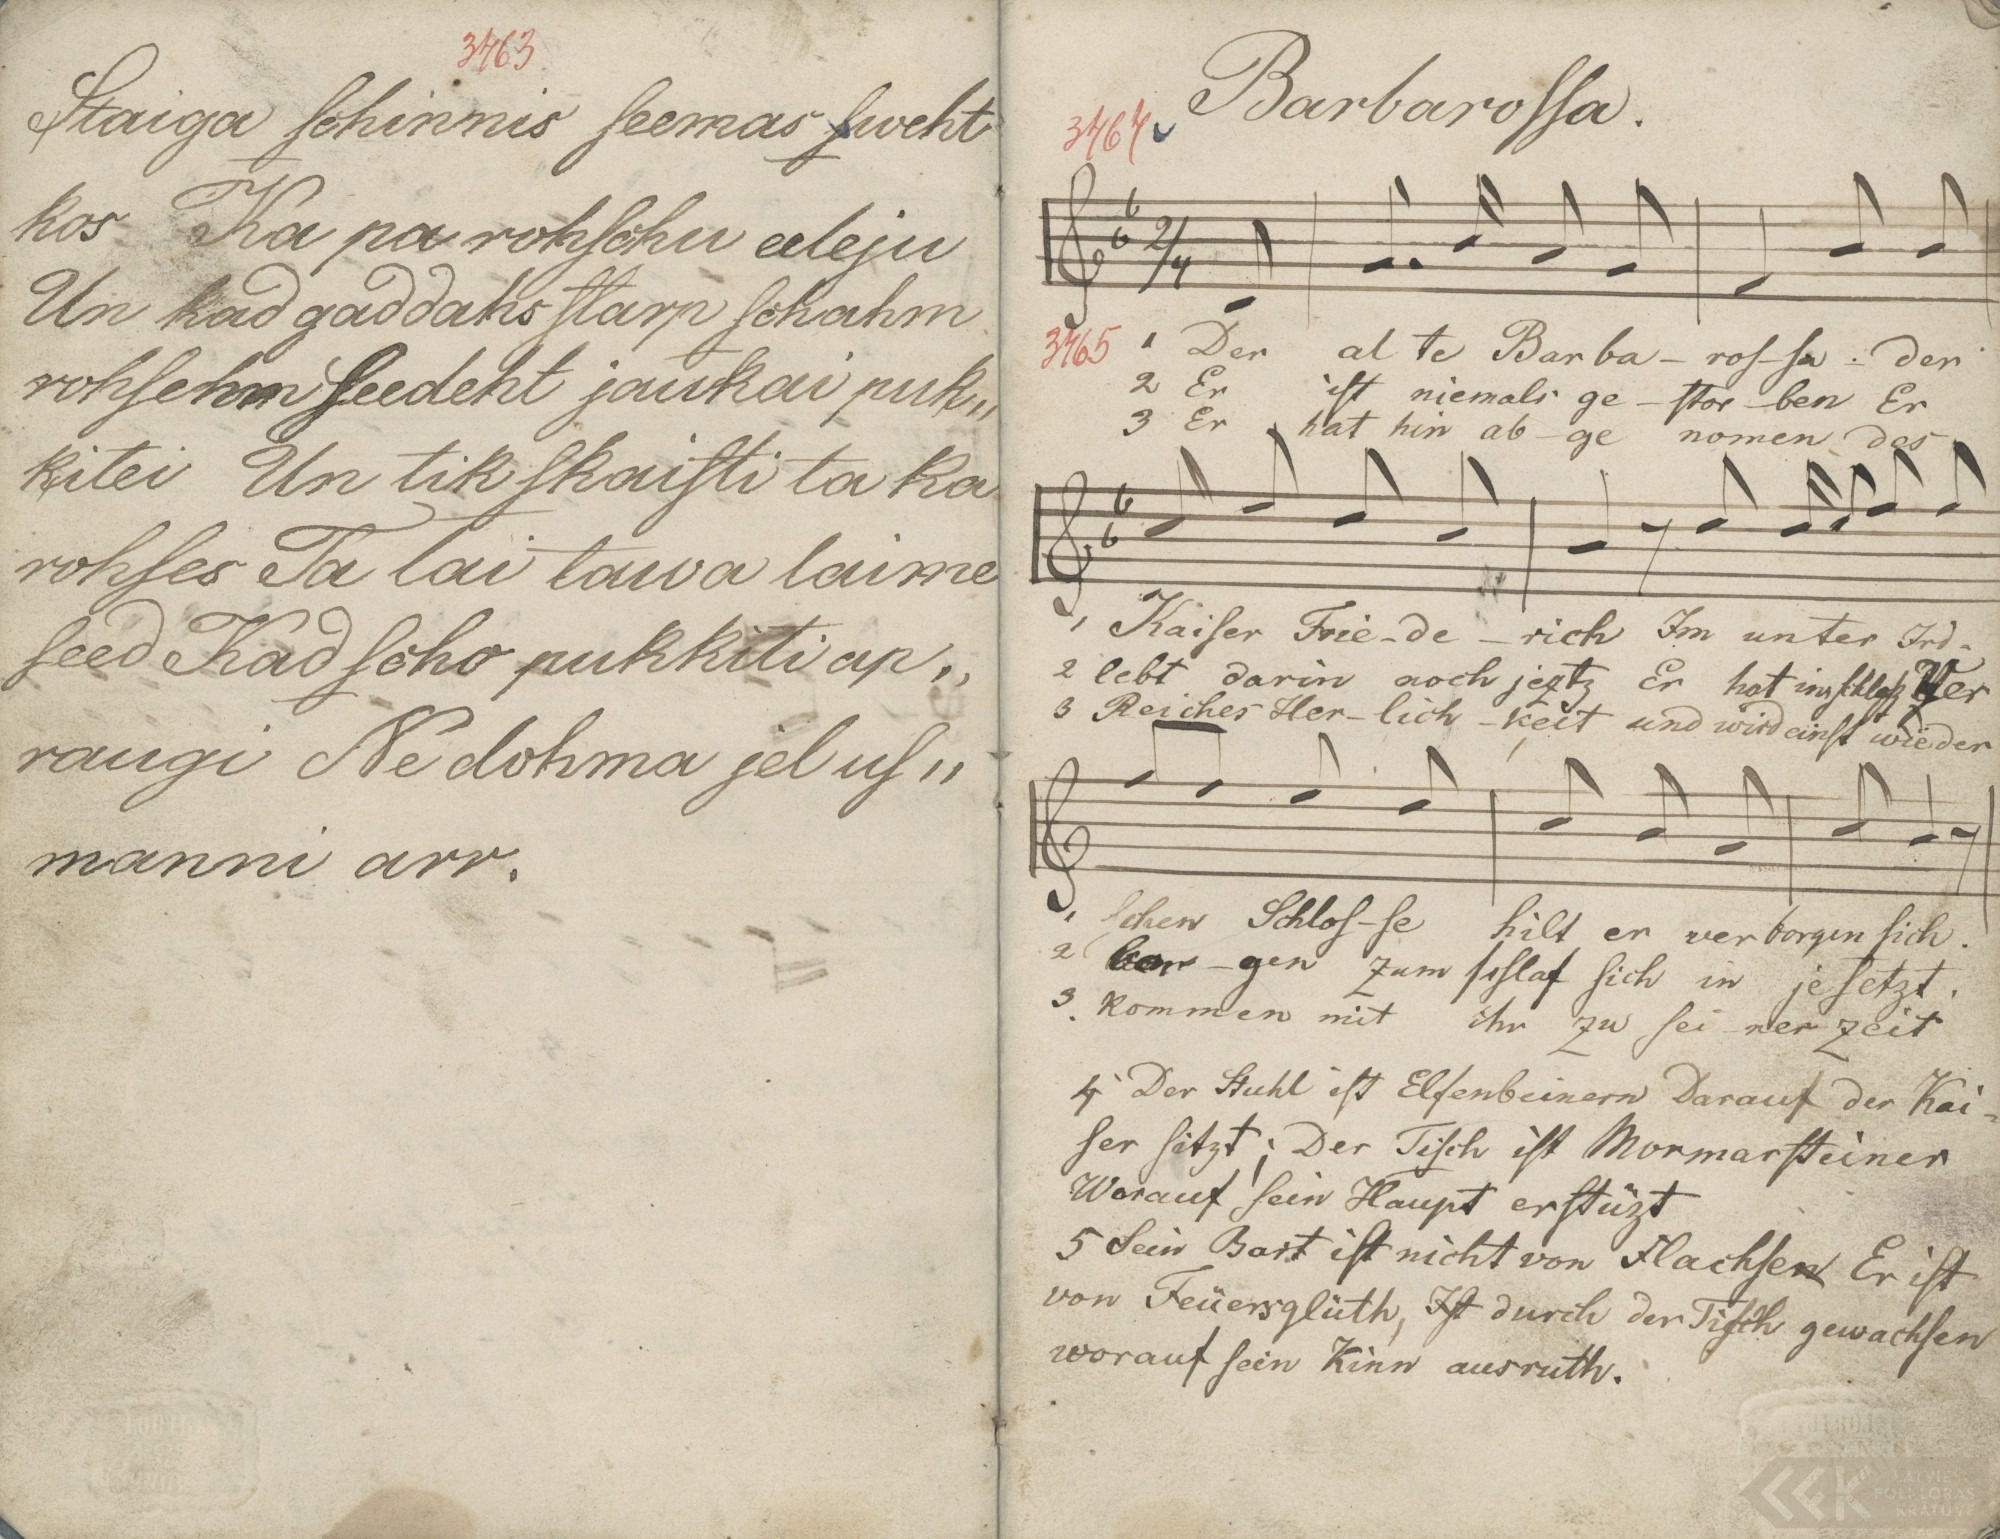 3463
Staiga schinnis seemas sweht
kos Ka pa rohschu aleju
Un kad gaddahs starp schahm
rohsehm seedeht jaukai puk„
kitei Un tik skaisti ta ka
rohses Ta lai tawa laime
seed Kad scho pukkiti ap„
raugi Ne dohma jel us„
manni arr.
Barbarossa.
3464
2/4
3465 1 Der al te Barba – ros-sa der
2 Er ist niemals ge – stor – ben Er
3 Er hat hin ab – ge nomen des
1 Kaiser Frie – de – rich Im unter Ird-
2 lebt darin noch jeztz Er hat im schloß Ver
3 Reiches Her – lich – keit und wird einst wieder
1 schen Schlos-se hilt er verborgen sich.
2 bor – gen zum schlaf sich in jesetzt.
3. kommen mit ihr zu sei – ner zeit
4 Der Stuhl ist Elfenbeinern Darauf der Kai-
ser sitzt; Der Tisch ist Mormarsteiner
Worauf sein Haupt erstüzt
5 Sein Bart ist nicht von Flachsen Er ist
von Feüersglüth, Ist durch der Tisch gewachsen
worauf sein Kinn ausruth.
LATVIEŠU
FOLKLORAS
KRĀTUVE